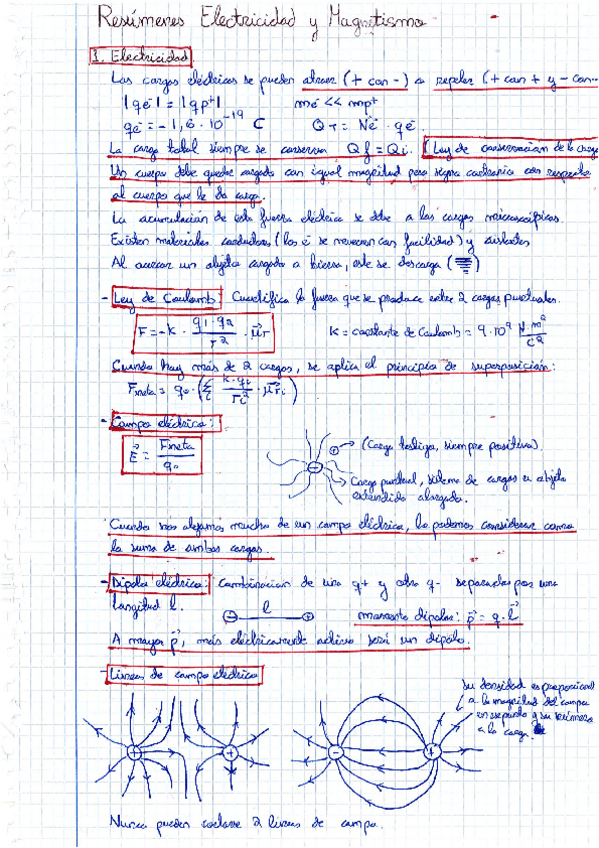 Resúmenes Electricidad y Magnetismo
1. Electricidad
Las cargas eléctricas se pueden atraer (+ con -) o repeler (+ con + y - con -
|qe⁻| = |qp⁺|    me⁻ << mp⁺
qe⁻ = -1,6 · 10⁻¹⁹ C    QT = Nē · qē
La carga total siempre se conserva Qf = Qi. (Ley de conservación de la carga
Un cuerpo debe quedar cargado con igual magnitud pero signo contrario con respecto
al cuerpo que le da carga.
La acumulación de esta fuerza eléctrica se debe a las cargas microscópicas.
Existen materiales conductores (los ē se mueven con facilidad) y aislantes
Al acercar un objeto cargado a tierra, este se descarga (⏚)
- Ley de Coulomb: Cuantifica la fuerza que se produce entre 2 cargas puntuales.
F = -k · q1·q2 / r² · μ⃗r    K = constante de Coulomb = 9·10⁹ N·m²/C²
Cuando hay más de 2 cargas, se aplica el principio de superposición:
Fneta = q₀ · (Σi k·qi / ri² · μ⃗ri)
- Campo eléctrico:
E⃗ = Fneta / q₀
(Carga testigo, siempre positiva).
Carga puntual, sistema de cargas u objeto
extendido alargado.
Cuando nos alejamos mucho de un campo eléctrico, lo podemos considerar como
la suma de ambas cargas.
- Dipolo eléctrico: Combinación de una q+ y otra q- separadas por una
longitud l.
l
momento dipolar: p⃗ = q·l⃗
A mayor p⃗, más eléctricamente activo será un dipolo.
- Líneas de campo eléctrico
su densidad es proporcional
a la magnitud del campo
en
a la carga
Nunca pueden 2 líneas de campo.